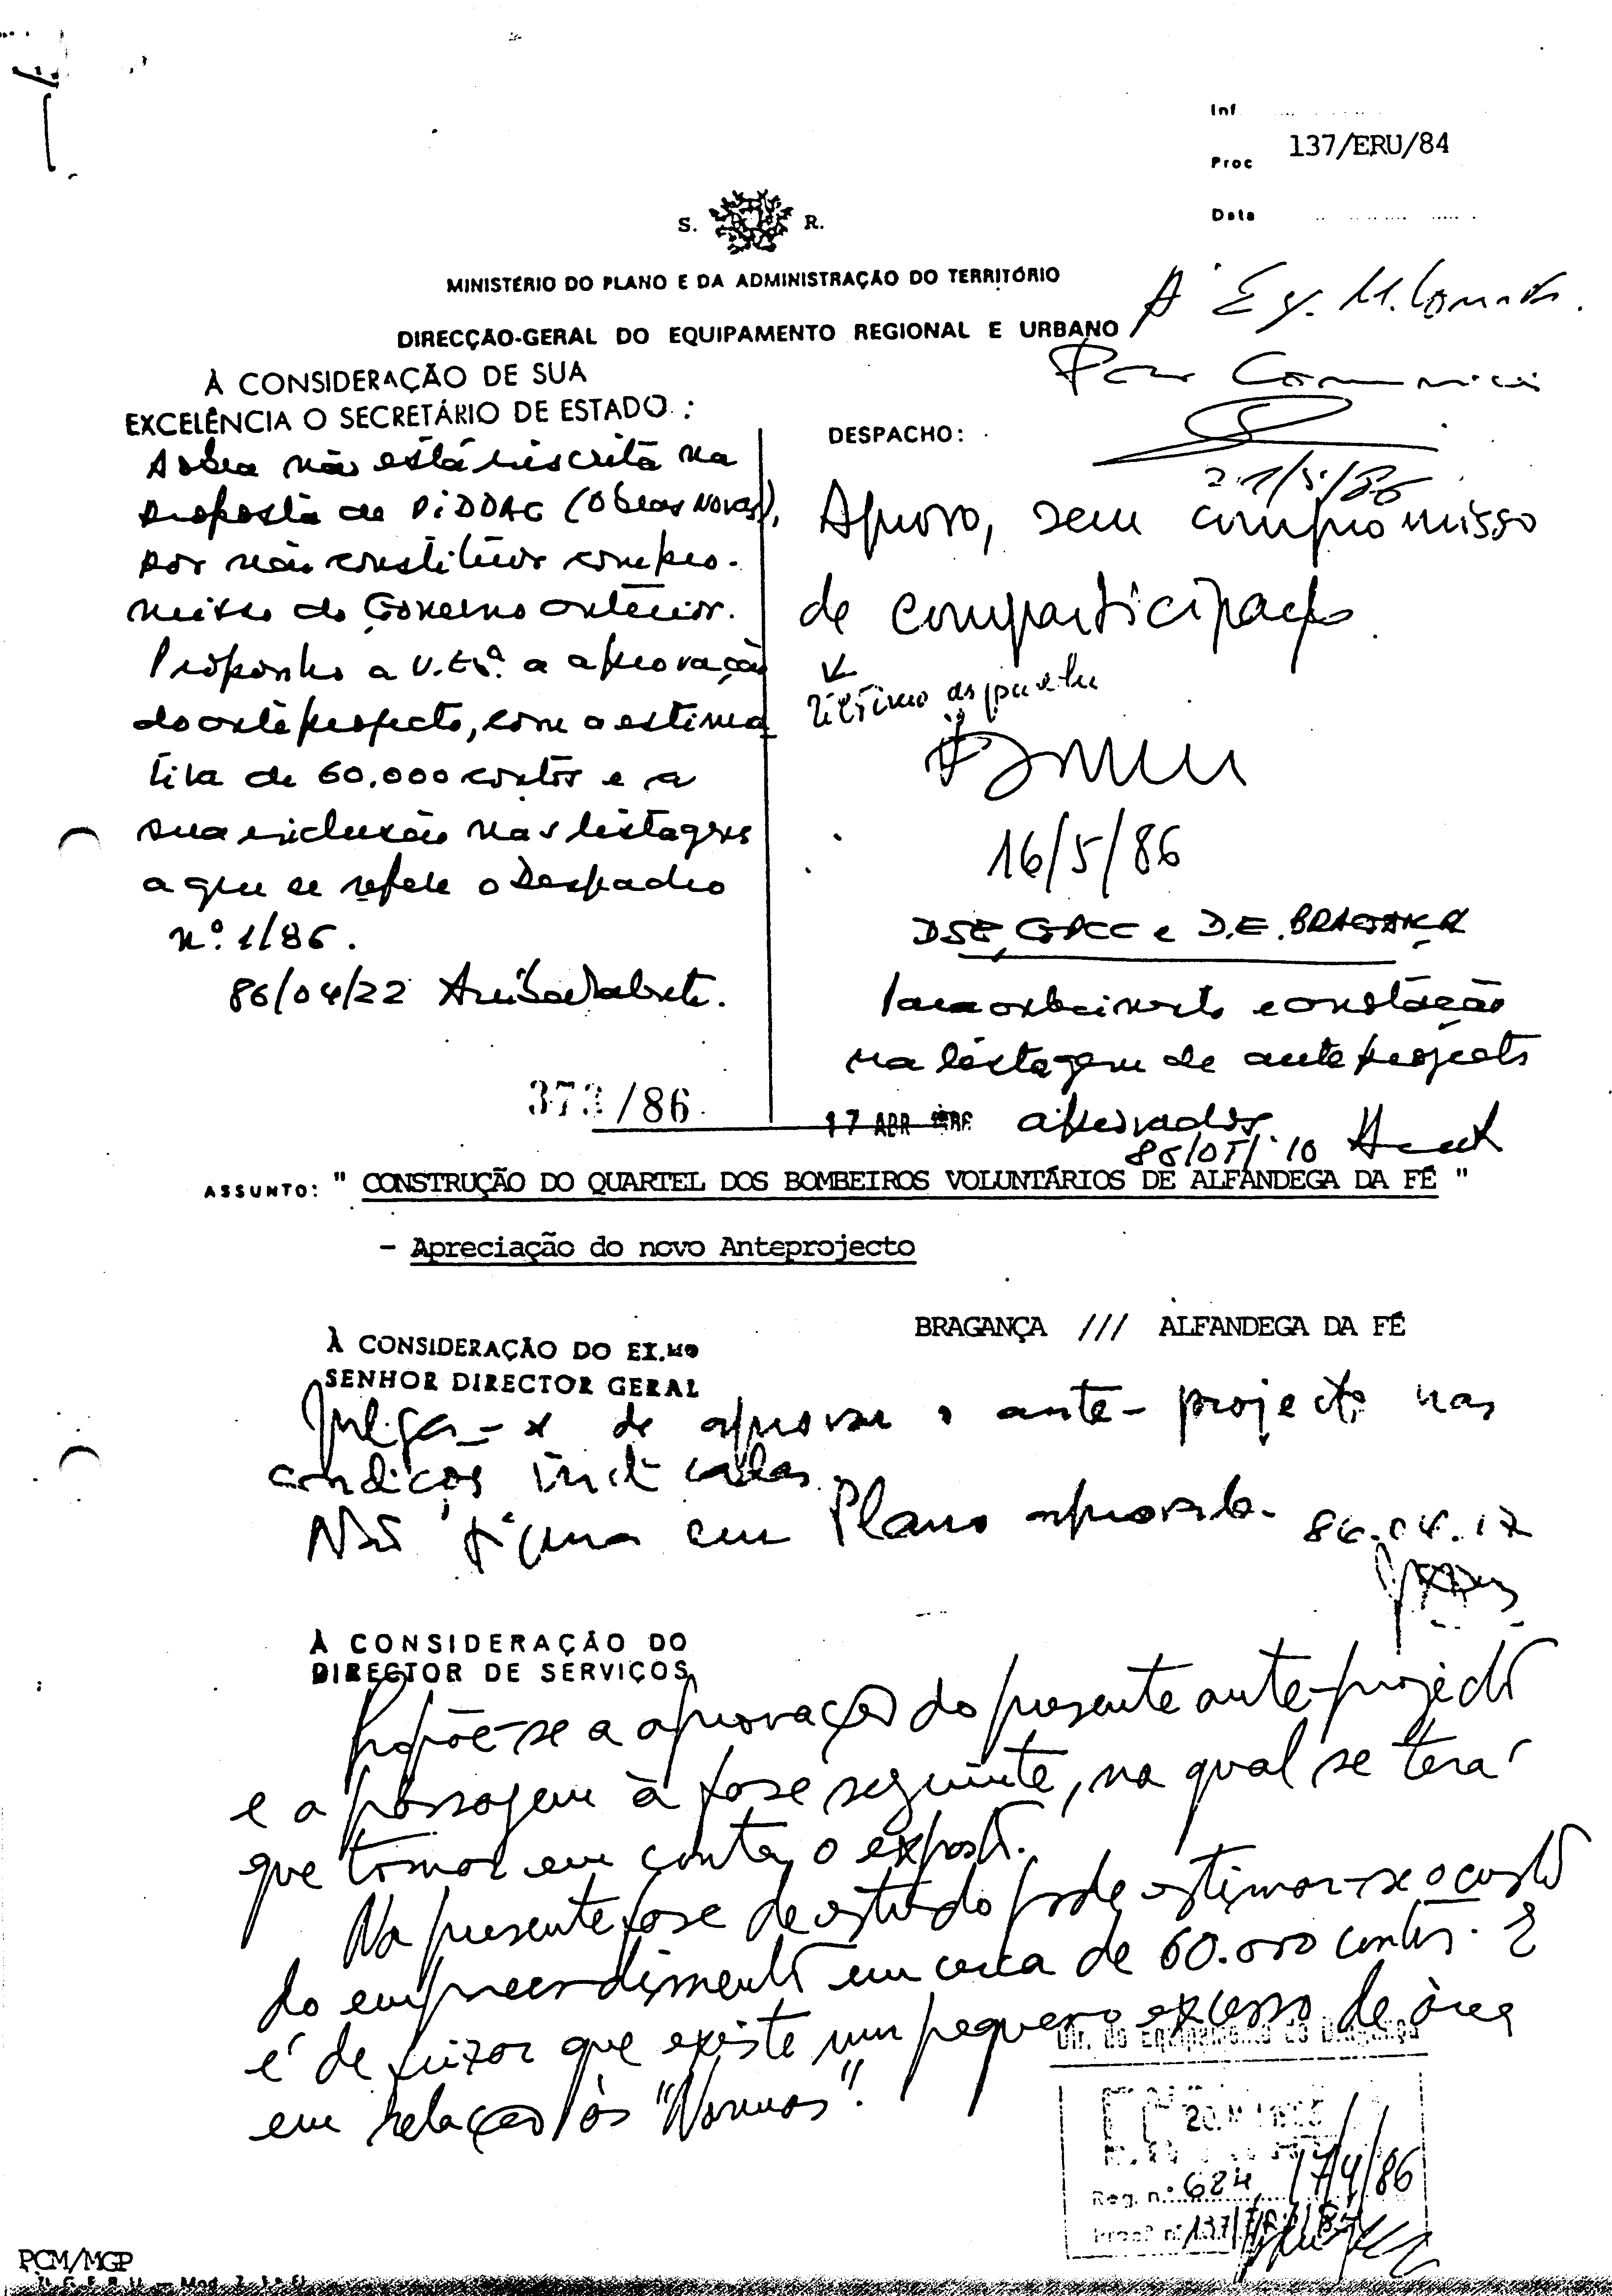 Inf
Proc 137/ERU/84
Data
S. R.
MINISTÉRIO DO PLANO E DA ADMINISTRAÇÃO DO TERRITÓRIO
DIRECÇÃO-GERAL DO EQUIPAMENTO REGIONAL E URBANO
À Ex. M.
Para Comunicar
21/5/86
À CONSIDERAÇÃO DE SUA
EXCELÊNCIA O SECRETÁRIO DE ESTADO :
A obra não está inscrita na
proposta de PIDDAC (Obras Novas),
por não constituir compro-
misso do Governo anterior.
Proponho a V.Exª. a aprovação
do anteprojecto, com a estima
tiva de 60.000 contos e a
sua inclusão nas listagens
a que se refere o Despacho
nº. 1/86.
86/04/22
373/86
DESPACHO:
Aprovo, sem compromisso
de comparticipação.
16/5/86
DSE, GPCC e D.E. BRAGANÇA
Para conhecimento e anotação
na listagem de anteprojectos
aprovados
17 ABR
ASSUNTO: " CONSTRUÇÃO DO QUARTEL DOS BOMBEIROS VOLUNTÁRIOS DE ALFANDEGA DA FÉ "
- Apreciação do novo Anteprojecto
BRAGANÇA /// ALFANDEGA DA FÉ
À CONSIDERAÇÃO DO EX.MO
SENHOR DIRECTOR GERAL
Julga-se de aprovar o ante-projecto nas
condições indicadas.
Não figura em Plano aprovado.
86.04.17
À CONSIDERAÇÃO DO
DIRECTOR DE SERVIÇOS
Propõe-se a aprovação do presente ante-projecto
e a passagem à fase seguinte, na qual se terá
que tomar em conta o exposto.
Na presente fase de estudo pode estimar-se o custo
do empreendimento em cerca de 60.000 contos. E
é de frizar que existe um pequeno excesso de área
em relação às "Normas".
17/4/86
Dir. de Equipamento de Bragança
Reg. n.º 624
PCM/MGP